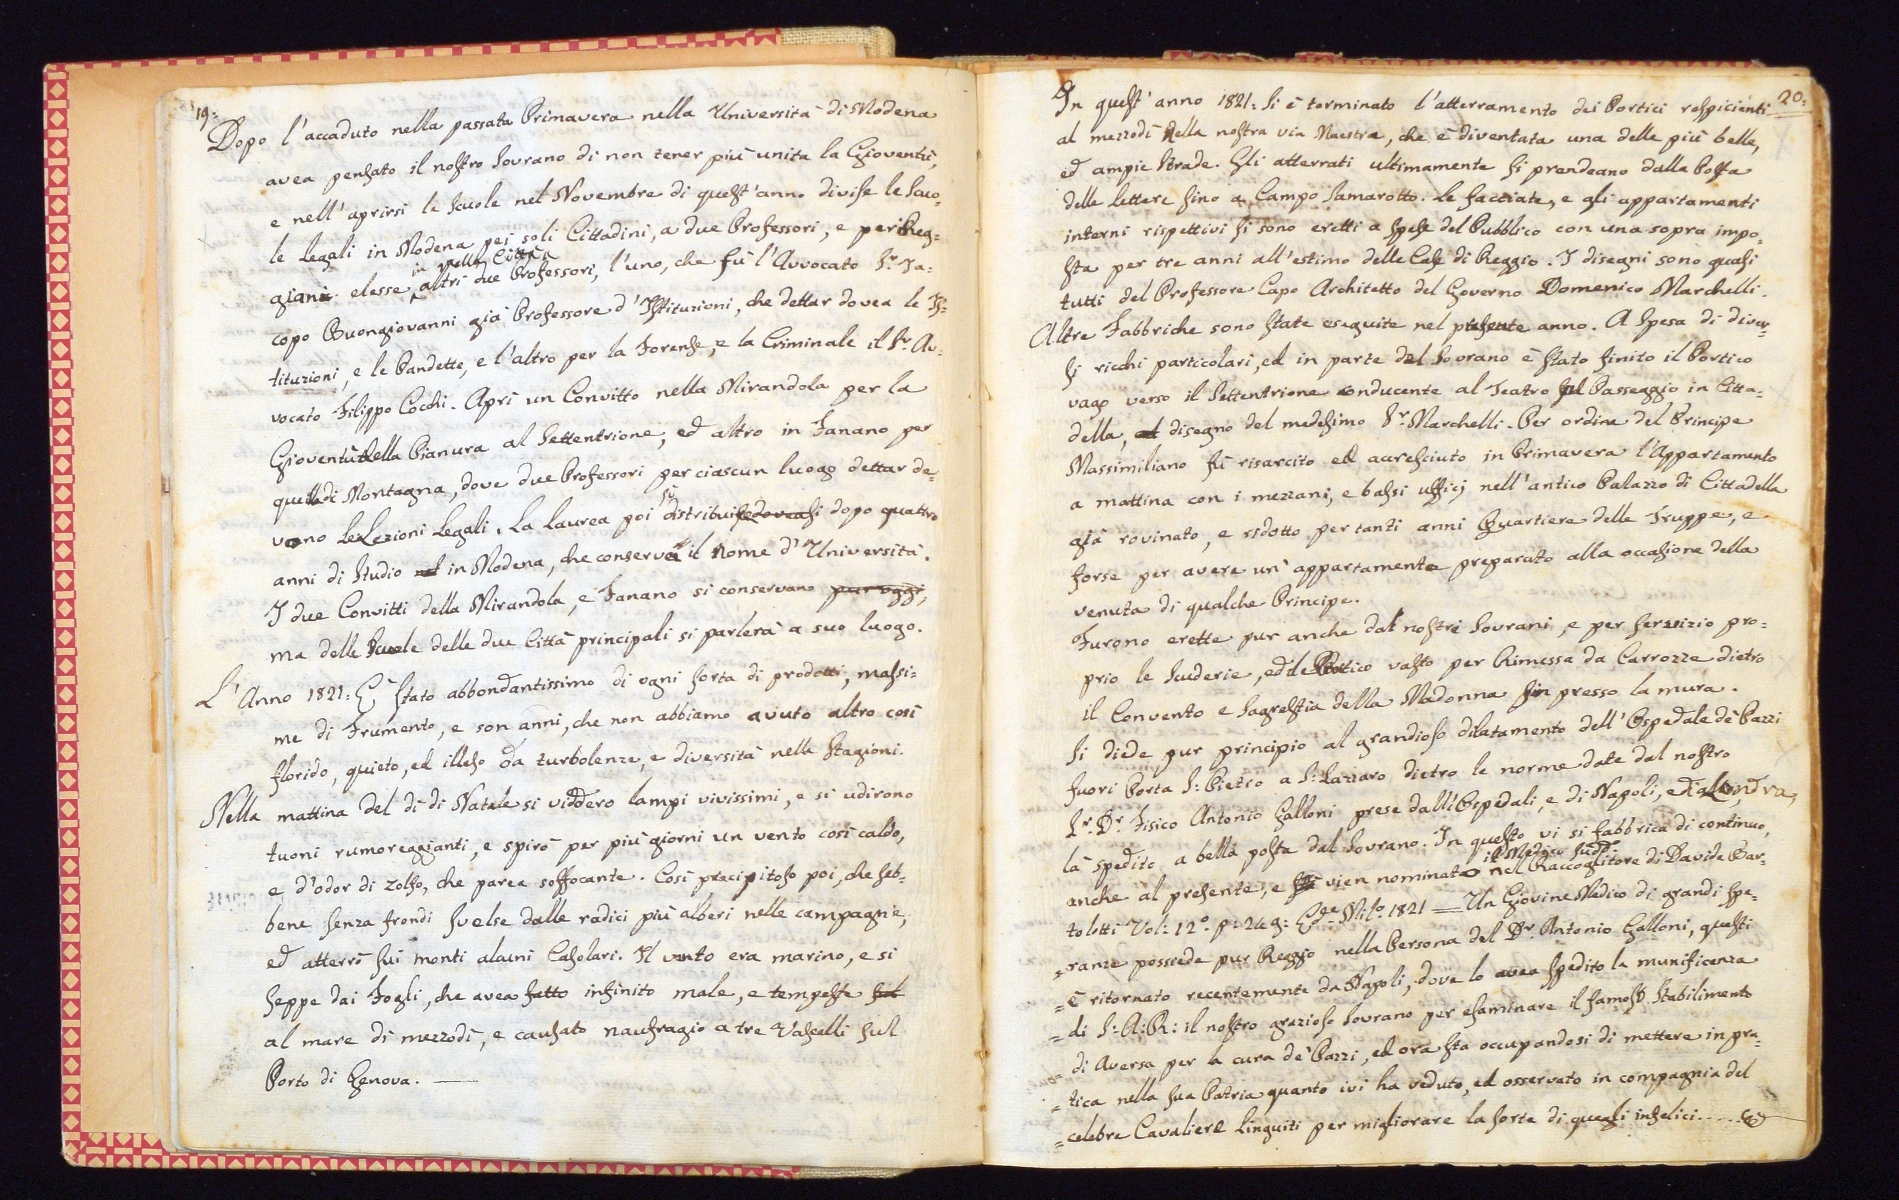 19:
Dopo l'accaduto nella passata Primavera nella Università di Modena
avea pensato il nostro Sovrano di non tener più unita la Gioventù,
e nell'aprirsi le Scuole nel Novembre di quest'anno divise le Scuo=
le Legali in Modena pei soli Cittadini, a due Professori, e pei Reg=
in quella Città
giani elesse altri due Professori, l'uno, che fù l'Avvocato Sr. Ja=
copo Buongiovanni già Professore d'Istituzioni, che dettar dovea le Is=
tituzioni, e le Pandette, e l'altro per la Forense, e la Criminale il Sr. Av=
vocato Filippo Cocchi. Aprì un Convitto nella Mirandola per la
Gioventù della Pianura al Settentrione, ed altro in Fanano per
quella di Montagna, dove due Professori per ciascun luogo dettar do=
vano le Lezioni Legali. La Laurea poi si distribuisce dovea si dopo quattro
anni di Studio in Modena, che conserva il nome d'Università.
I due Convitti della Mirandola, e Fanano si conservano pur oggi,
ma delle Scuole delle due Città principali si parlerà a suo luogo.
L'Anno 1821: È stato abbondantissimo di ogni sorta di prodotti, massi=
me di Frumento, e son anni, che non abbiamo avuto altro così
florido, quieto, ed illeso da turbolenze, e diversità nelle Stagioni.
Nella mattina del dì di Natale si viddero lampi vivissimi, e si udirono
tuoni rumoreggianti, e spirò per più giorni un vento così caldo,
e d'odor di zolfo, che parea soffocante. Così precipitoso poi, che seb=
bene senza frondi svelse dalle radici più alberi nelle campagne,
ed atterrò sui monti alcuni Casolari. Il vento era marino, e si
seppe dai Fogli, che avea fatto infinito male, e tempeste
al mare di mezzodì, e causato naufragio a tre Vascelli sul
Porto di Genova. —
20:
In quest'anno 1821: Si è terminato l'atterramento dei Portici respicienti
al mezzodì della nostra via Maestra, che è diventata una delle più belle,
ed ampie Strade. Gli atterrati ultimamente si prendeano dalla Posta
delle Lettere sino a Campo Samarotto. Le facciate, e gli appartamenti
interni rispettivi si sono eretti a spese del Pubblico con una sopra impo=
sta per tre anni all'estimo delle Case di Reggio. I disegni sono quasi
tutti del Professore Capo Architetto del Governo Domenico Marchelli.
Altre Fabbriche sono state eseguite nel presente anno. A Spesa di diver=
si ricchi particolari, ed in parte del Sovrano è stato finito il Portico
vago verso il Settentrione conducente al Teatro pel Passeggio in Citta=
della, disegno del medesimo Sr. Marchelli. Per ordine del Principe
Massimiliano fù risarcito ed accresciuto in Primavera l'Appartamento
a mattina con i mezzani, e bassi ufficj nell'antico Palazzo di Cittadella
già rovinato, e ridotto per tanti anni Quartiere delle Truppe, e
forse per avere un'appartamento preparato alla occasione della
venuta di qualche Principe.
Furono erette pur anche dai nostri Sovrani, e per servizio pro=
prio le Scuderie, ed il Portico vasto per Rimessa da Carrozze dietro
il Convento e Sagrestia della Madonna fin presso la mura.
Si diede pur principio al grandioso dilatamento dell'Ospedale de' Pazzi
fuori Porta S: Pietro a S: Lazzaro dietro le norme date dal nostro
Sr. Dr. Fisico Antonio Galloni prese dall'Ospedali, e di Napoli, e di Londra,
là spedito a bella posta dal Sovrano. In questo vi si fabbrica di continuo,
il Medico Sudd.
anche al presente, e vien nominato nel Raccoglitore di Davide Ber=
tolotti Vol: 12.º p: 249: Ede. Milo. 1821 = Un Giovine Medico di grandi spe=
=ranze possiede pur Reggio nella Persona del Dr. Antonio Galloni, questi
= è ritornato recentemente da Napoli, dove lo avea spedito la munificenza
= di S: A: R: il nostro grazioso Sovrano per esaminare il famoso Stabilimento
= di Aversa per la cura de' Pazzi, ed ora sta occupandosi di mettere in pra=
= tica nella sua Patria quanto ivi ha veduto, ed osservato in compagnia del
= celebre Cavaliere Linguiti per migliorare la sorte di quegli infelici.....